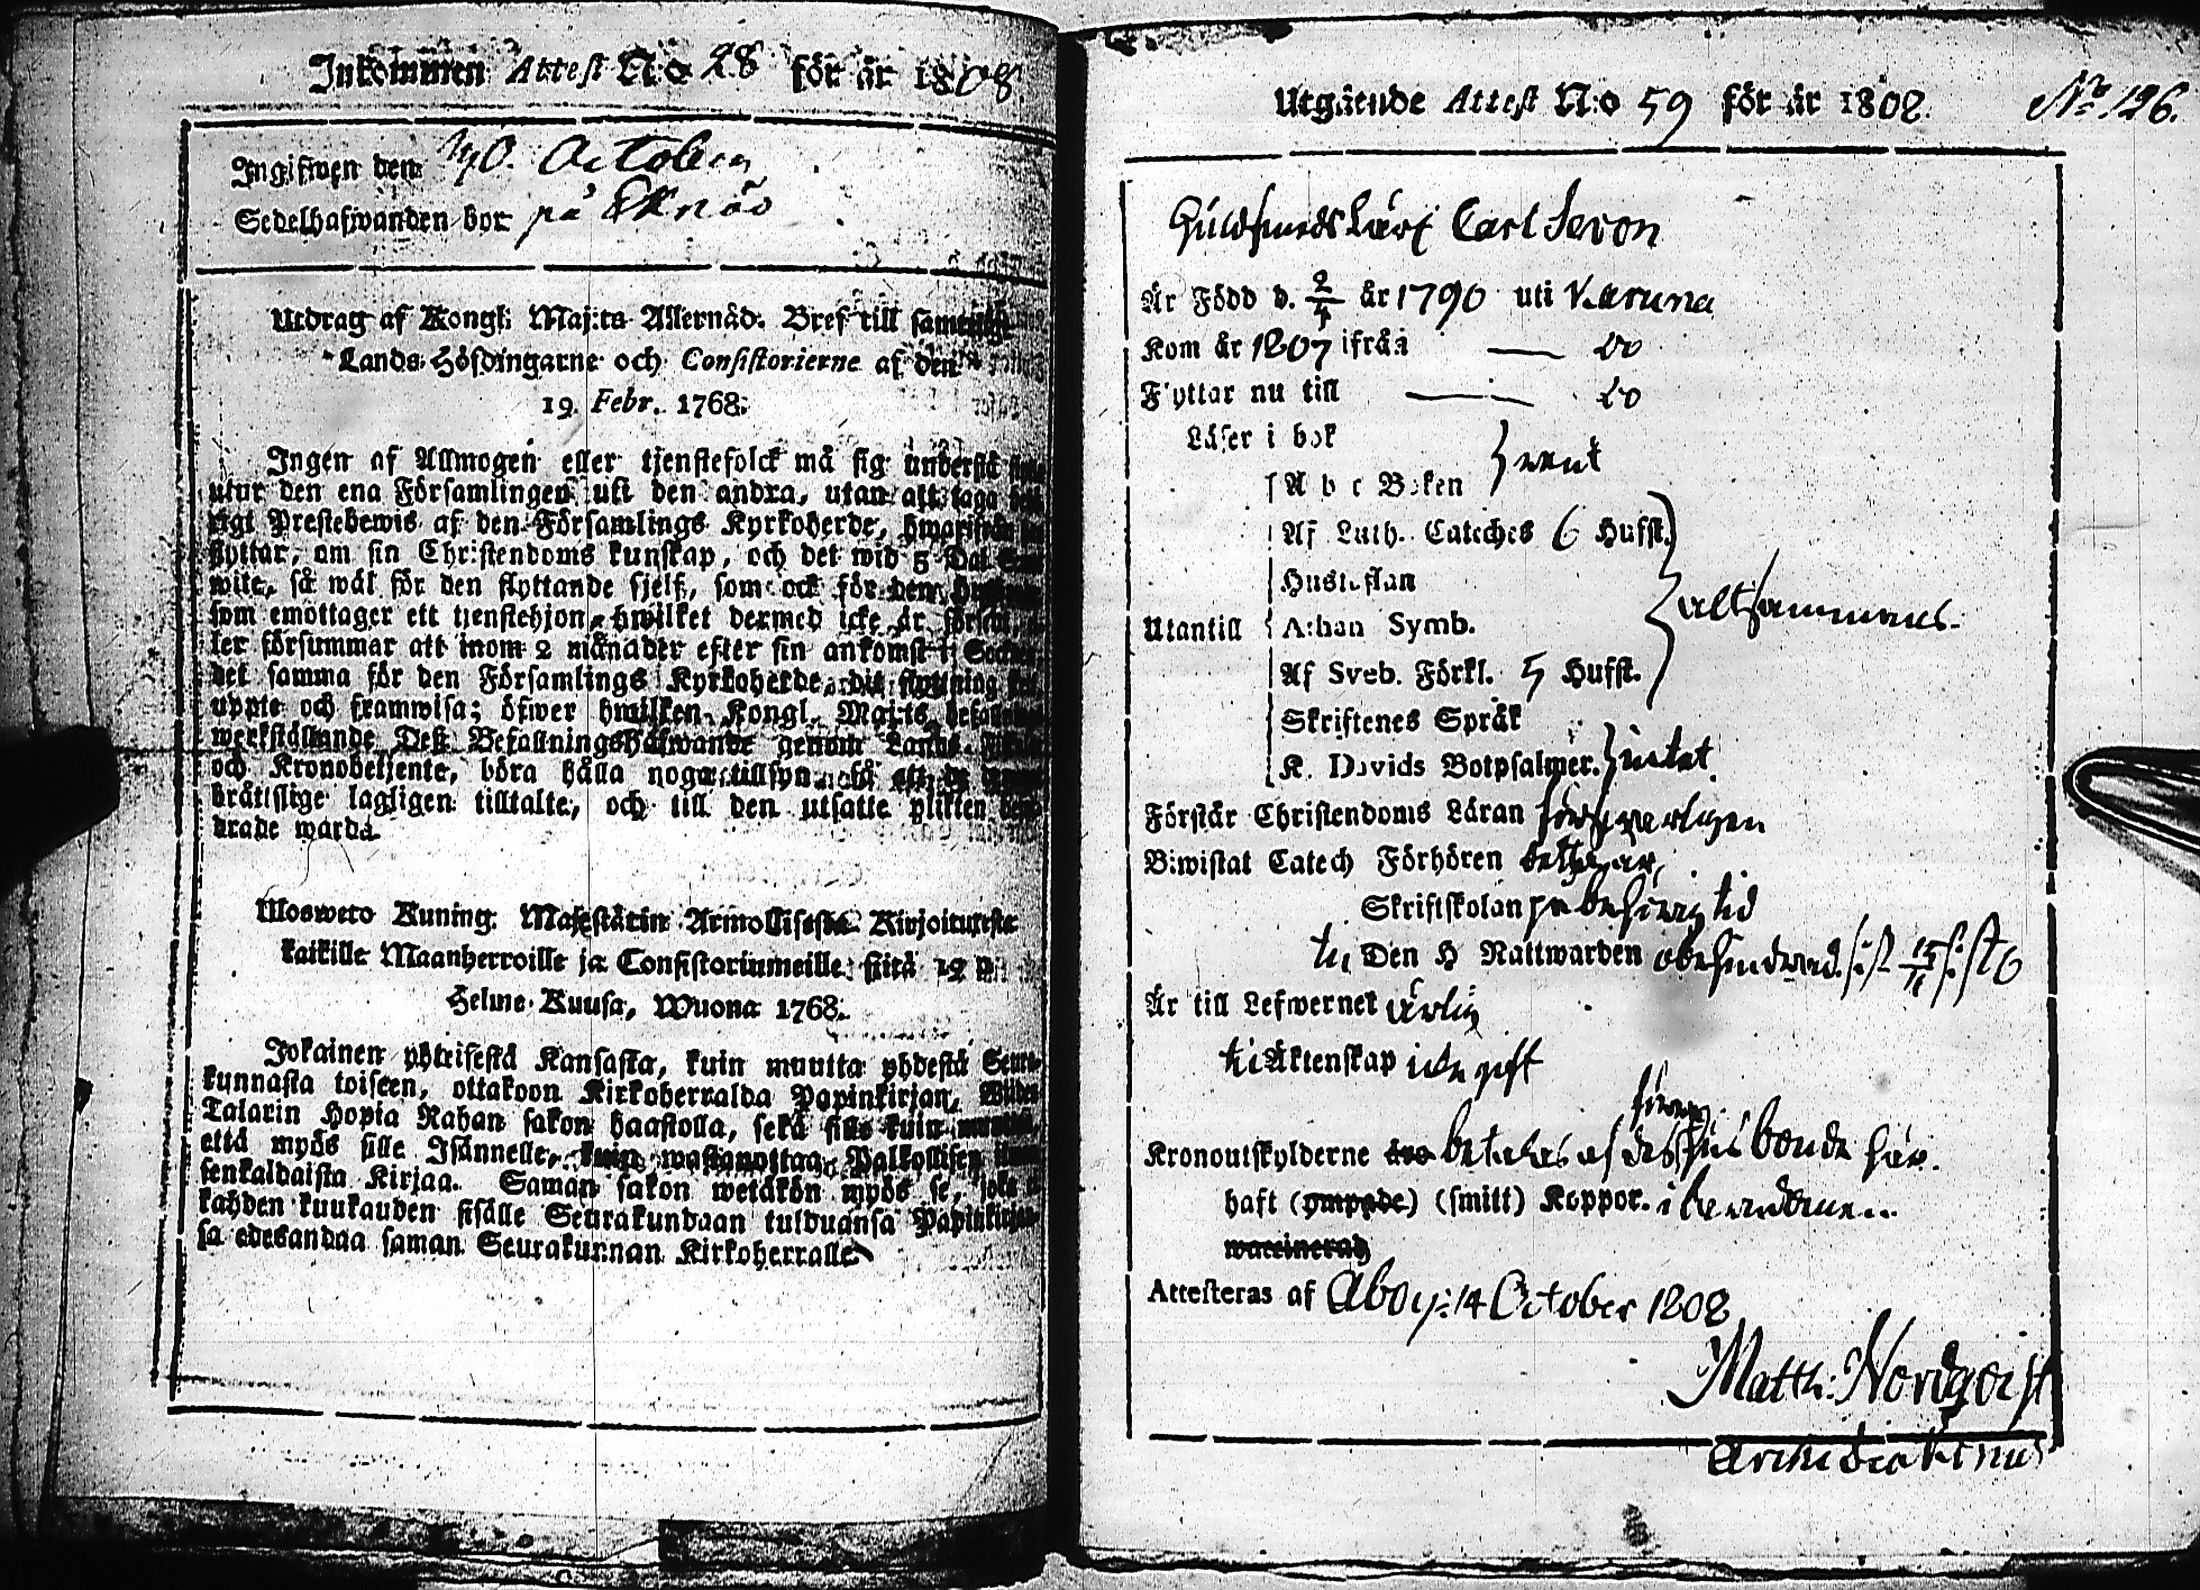 Inkommen Attest N:o 28 för år 1808
Ingifwen den 30. October
Sedelhafwanden bor på Eknäs
Utdrag af Kongl. Maj:ts Allernåd. Bref till samtelige
Lands-Höfdingarne och Consistorierne af den
19. Febr. 1768.
Ingen af Allmogen eller tjenstefolck må sig understå
utur den ena Församlingen uti den andra, utan att taga
Prestebewis af den Församlings Kyrkoherde, hwarifrån
flyttar, om sin Christendoms kunskap, och det wid 5 Dal.
wite, så wäl för den flyttande sjelf, som ock för den
som emottager ett tjenstehjon, hwilket dermed icke är försedt,
ler försummar att inom 2 månader efter sin ankomst i
det samma för den Församlings Kyrkoherde, dit flyttning
uppte och framwisa; öfwer hwilken Kongl. Maj:ts
werkställande Dess Befallningshafwande genom Lands-
och Kronobetjente, böra hålla noga tillsyn, så att de
bråttslige lagligen tilltalte, och till den utsatte plikten
drade warda.
Mosweto Kuning. Majestätin Armollisesta Kirjoituxesta
kaikille Maanherroille ja Consistoriumeille, siitä 19 p.
Helme-Kuusa, Wuona 1768.
Jokainen yhteisestä Kansasta, kuin muutta yhdestä Seura-
kunnasta toiseen, ottakoon Kirkoherralda Papinkirjan, Wiiden
Talarin Hopia Rahan sakon haastolla, sekä sille kuin muutta,
että myös sille Isännelle, kuin wastanottaa Palkollisen ilman
senkaldaista Kirjaa. Saman sakon wetäkön myös se, joka ei
kahden kuukauden sisälle Seurakundaan tulduansa Papinkirjan-
sa edesandaa saman Seurakunnan Kirkoherralle.
Utgående Attest N:o 59 för år 1808. No. 126.
Guldsmeds Lärl Carl Sevon
Är Född d. 2/4 år 1790 uti Karuna
Kom år 1807 ifrån — do
Flyttar nu till — do
Läser i bok } rent
A b c Boken
Af Luth. Cateches 6 Hufst.
Hustaflan
Utantill Athan Symb. } altsammans.
Af Sveb. Förkl. 5 Hufst.
Skriftenes Språk
K. Davids Botpsalmer. } intet
Förstår Christendoms Läran försvarligen
Biwistat Catech Förhören
Skriftskolan på behörig tid
Den H Nattwarden obehindrad
Är till Lefwernet ärlig
till Äktenskap icke gift
Kronoutskylderne äro betalas af dess husbonde här.
haft (ympade) (smitt) Koppor. i barndomen.
waccinerad
Attesteras af Åbo d: 14 October 1808
Matth: Nordqvist
Archidiakonus